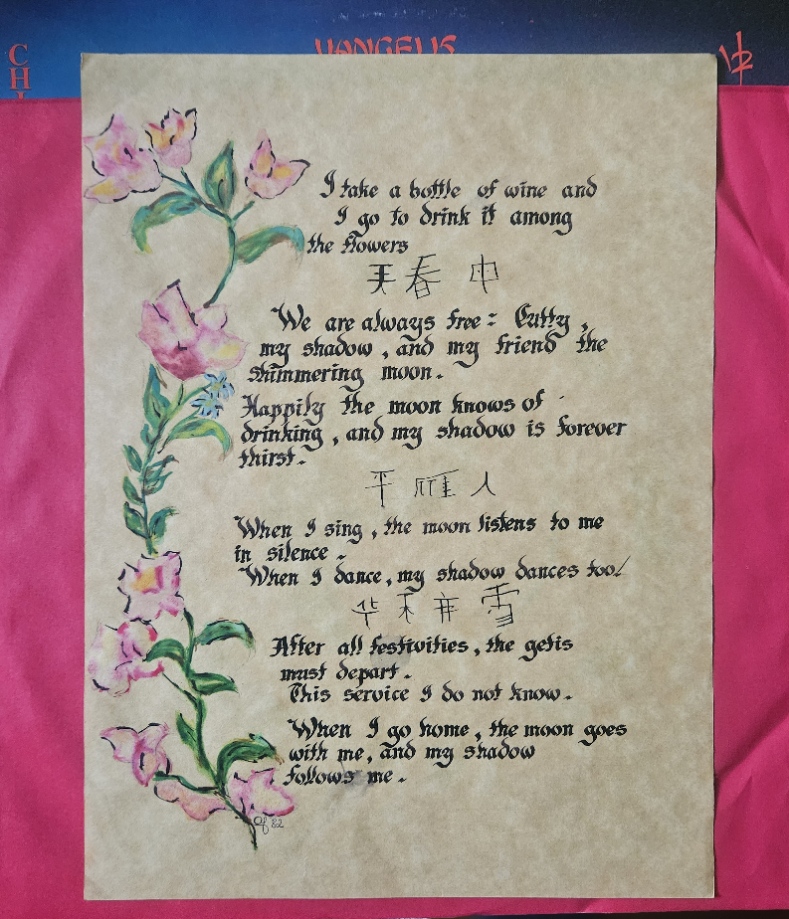 VANGELIS
C
H
I
I take a bottle of wine and
I go to drink it among
the flowers
春 中
We are always free : Cutty ,
my shadow , and my friend the
shimmering moon .
Happily the moon knows of
drinking , and my shadow is forever
thirst .
平 雁 人
When I sing , the moon listens to me
in silence .
When I dance , my shadow dances too!
华 雪
After all festivities , the getis
must depart .
This service I do not know .
When I go home , the moon goes
with me , and my shadow
follows me .
82